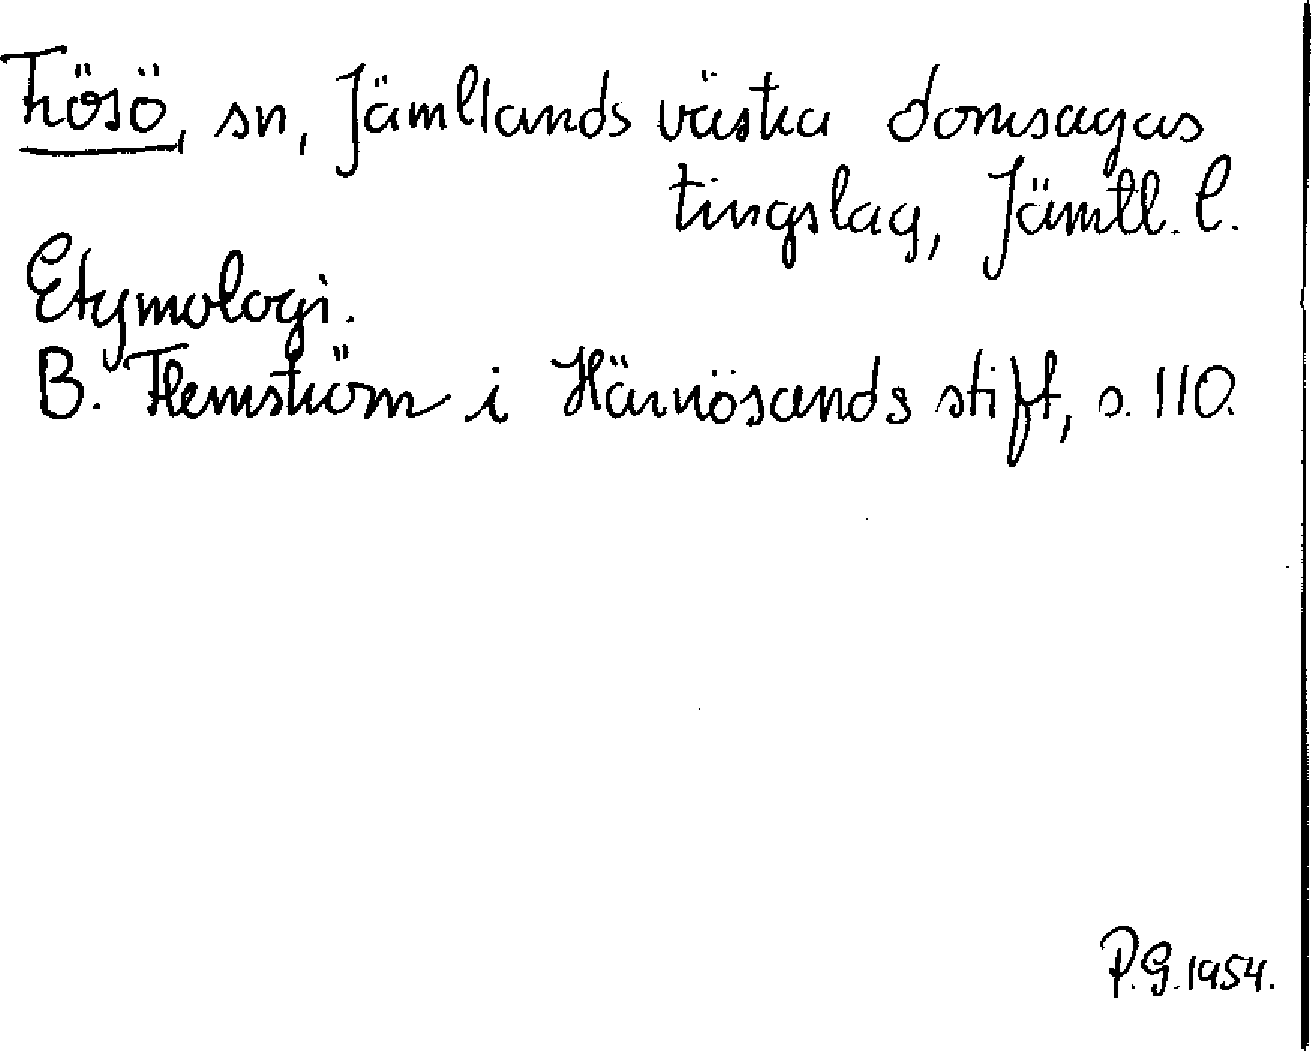 Frösö, sn, Jämtlands västra domsagas
tingslag, Jämtl. l.
Etymologi.
B. Flemström i Härnösands stift, s. 110.
P.G. 1954.